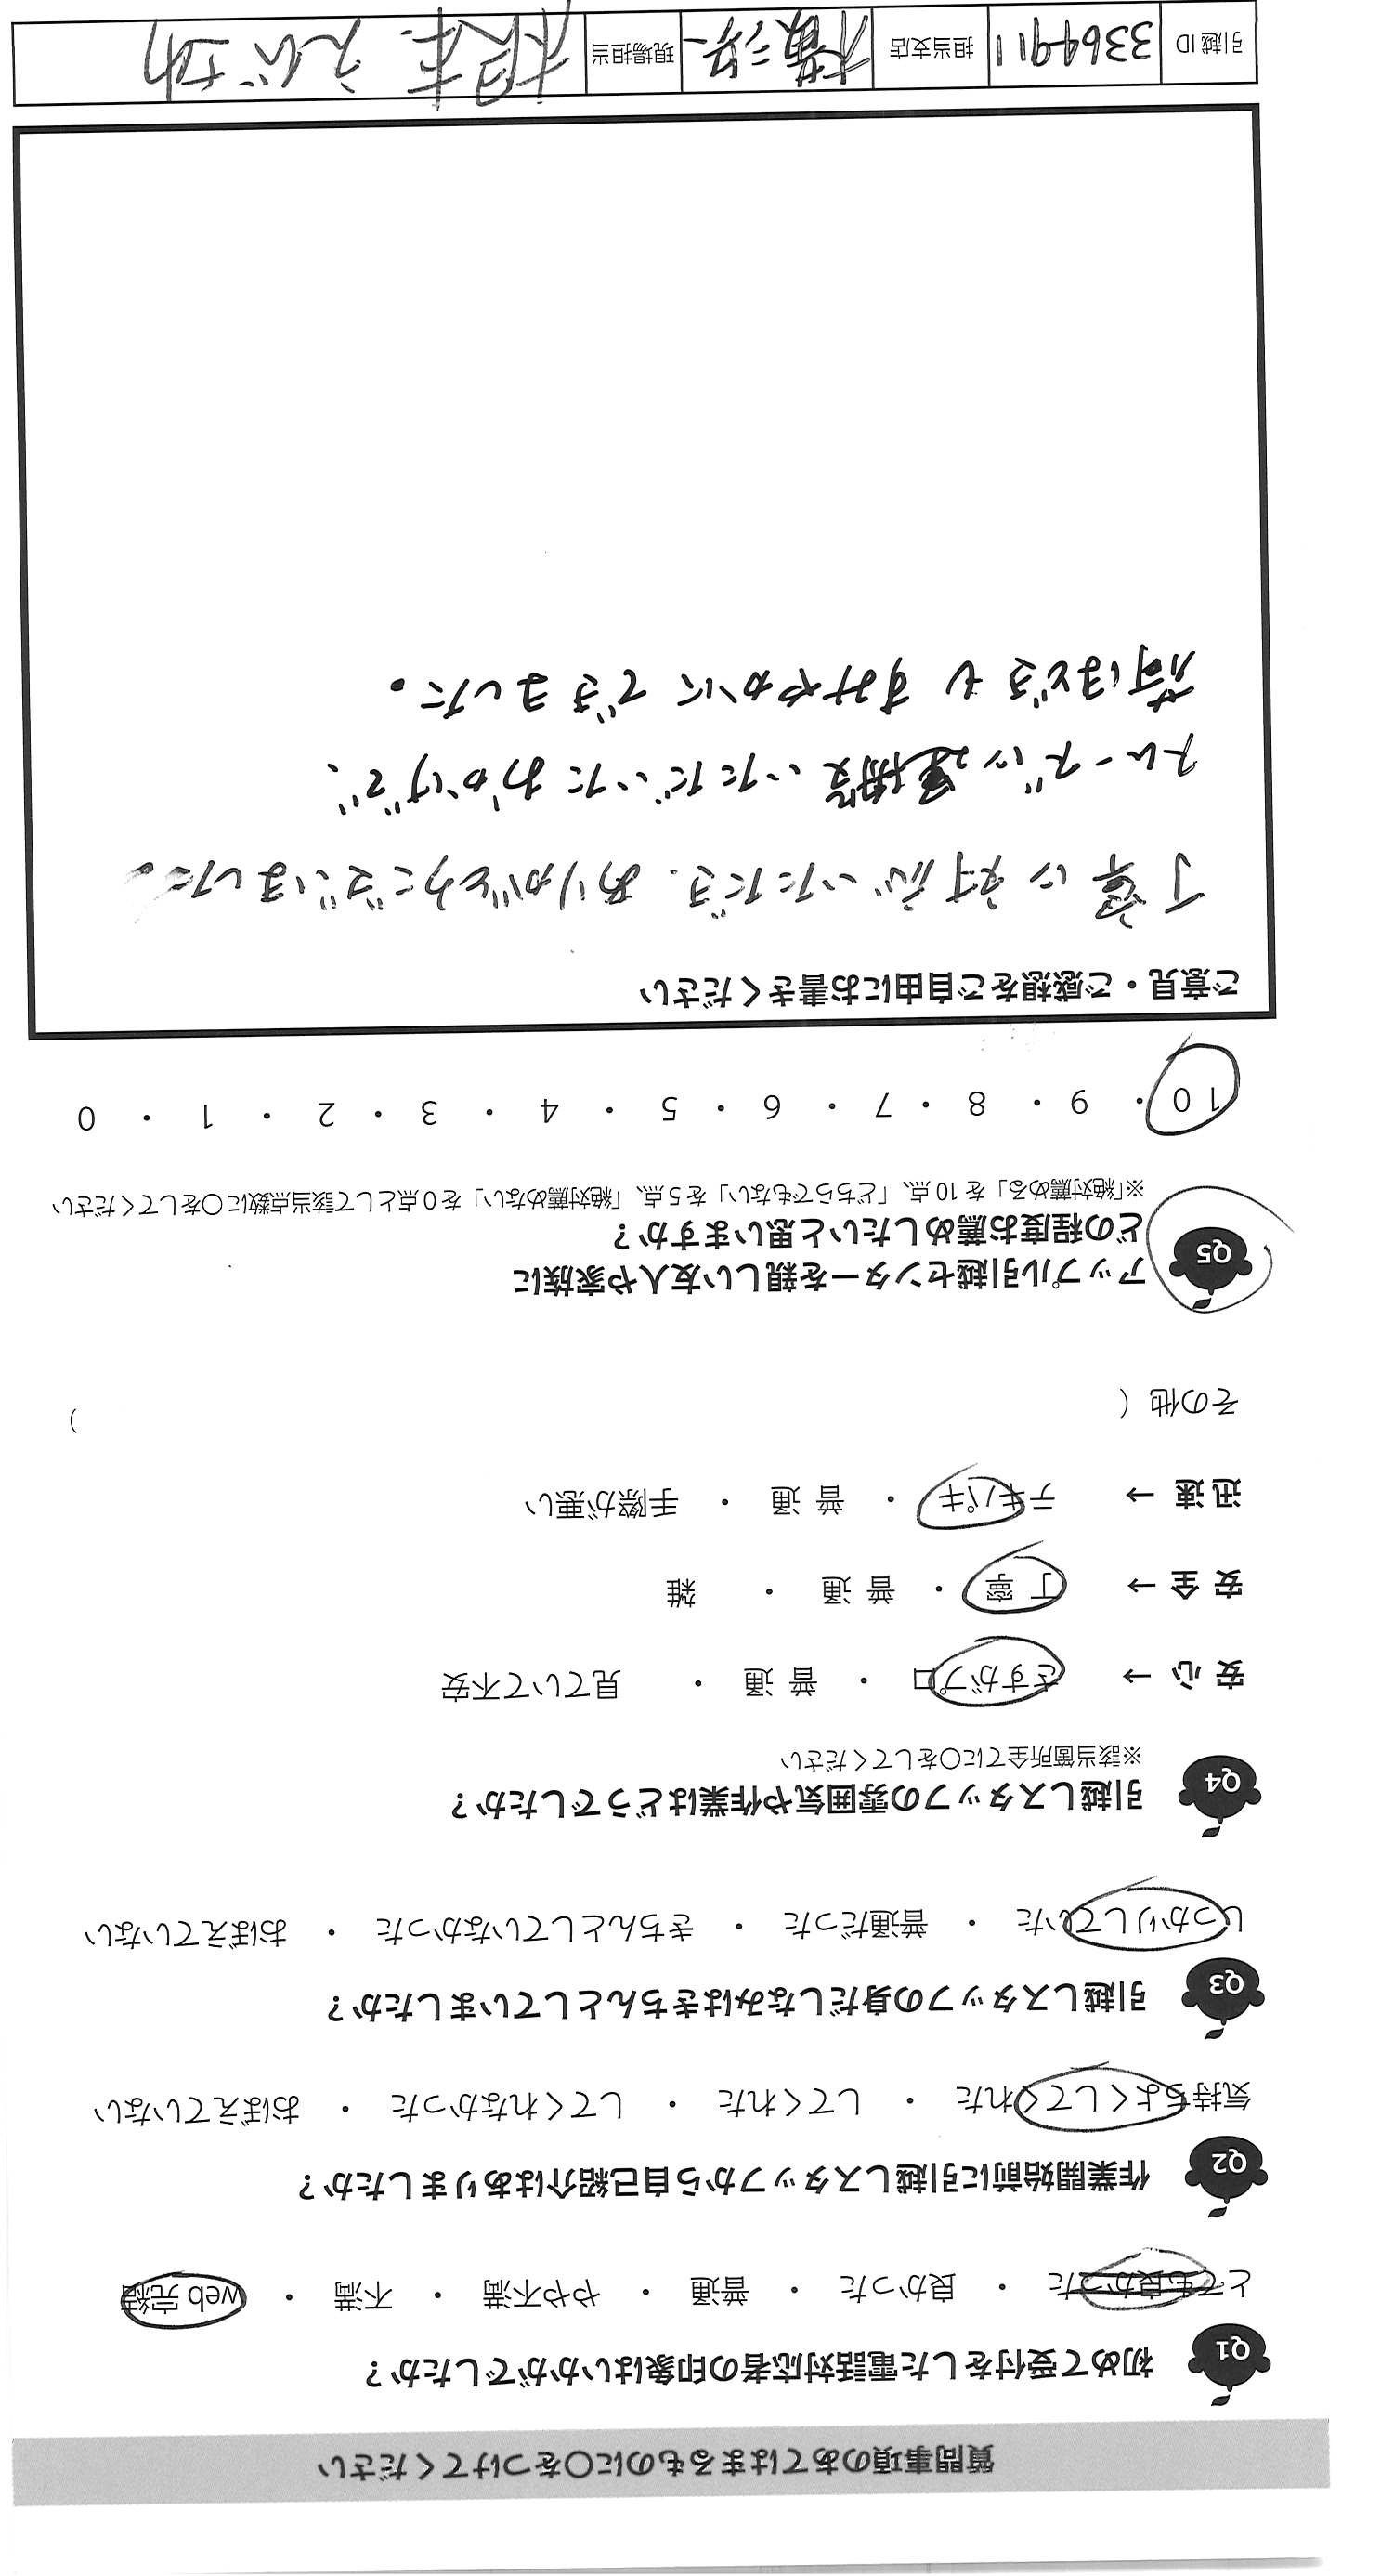 質問事項のあてはまるものに○をつけてください
Q1 初めて受付をした電話対応者の印象はいかがでしたか？
とても良かった ・ 良かった ・ 普通 ・ やや不満 ・ 不満 ・ web 完結
Q2 作業開始前に引越しスタッフから自己紹介はありましたか？
気持ちよくしてくれた ・ してくれた ・ してくれなかった ・ おぼえていない
Q3 引越しスタッフの身だしなみはきちんとしていましたか？
しっかりしていた ・ 普通だった ・ きちんとしていなかった ・ おぼえていない
Q4 引越しスタッフの雰囲気や作業はどうでしたか？
※該当箇所全てに○をしてください
安 心 → さすがプロ ・ 普 通 ・ 見ていて不安
安 全 → 丁 寧 ・ 普 通 ・ 雑
迅 速 → テキパキ ・ 普 通 ・ 手際が悪い
その他（ ）
Q5 アップル引越センターを親しい友人や家族に
どの程度お薦めしたいと思いますか？
※「絶対薦める」を 10 点、「どちらでもない」を 5 点、「絶対薦めない」を 0 点として該当点数に○をしてください
10 ・ 9 ・ 8 ・ 7 ・ 6 ・ 5 ・ 4 ・ 3 ・ 2 ・ 1 ・ 0
ご意見・ご感想をご自由にお書きください
丁寧に対応いただき、ありがとうございました。
スムーズに運搬いただいたおかげで、
荷ほどきもすみやかにできました。
引越 ID 3364911 担当支店 現場担当 根本